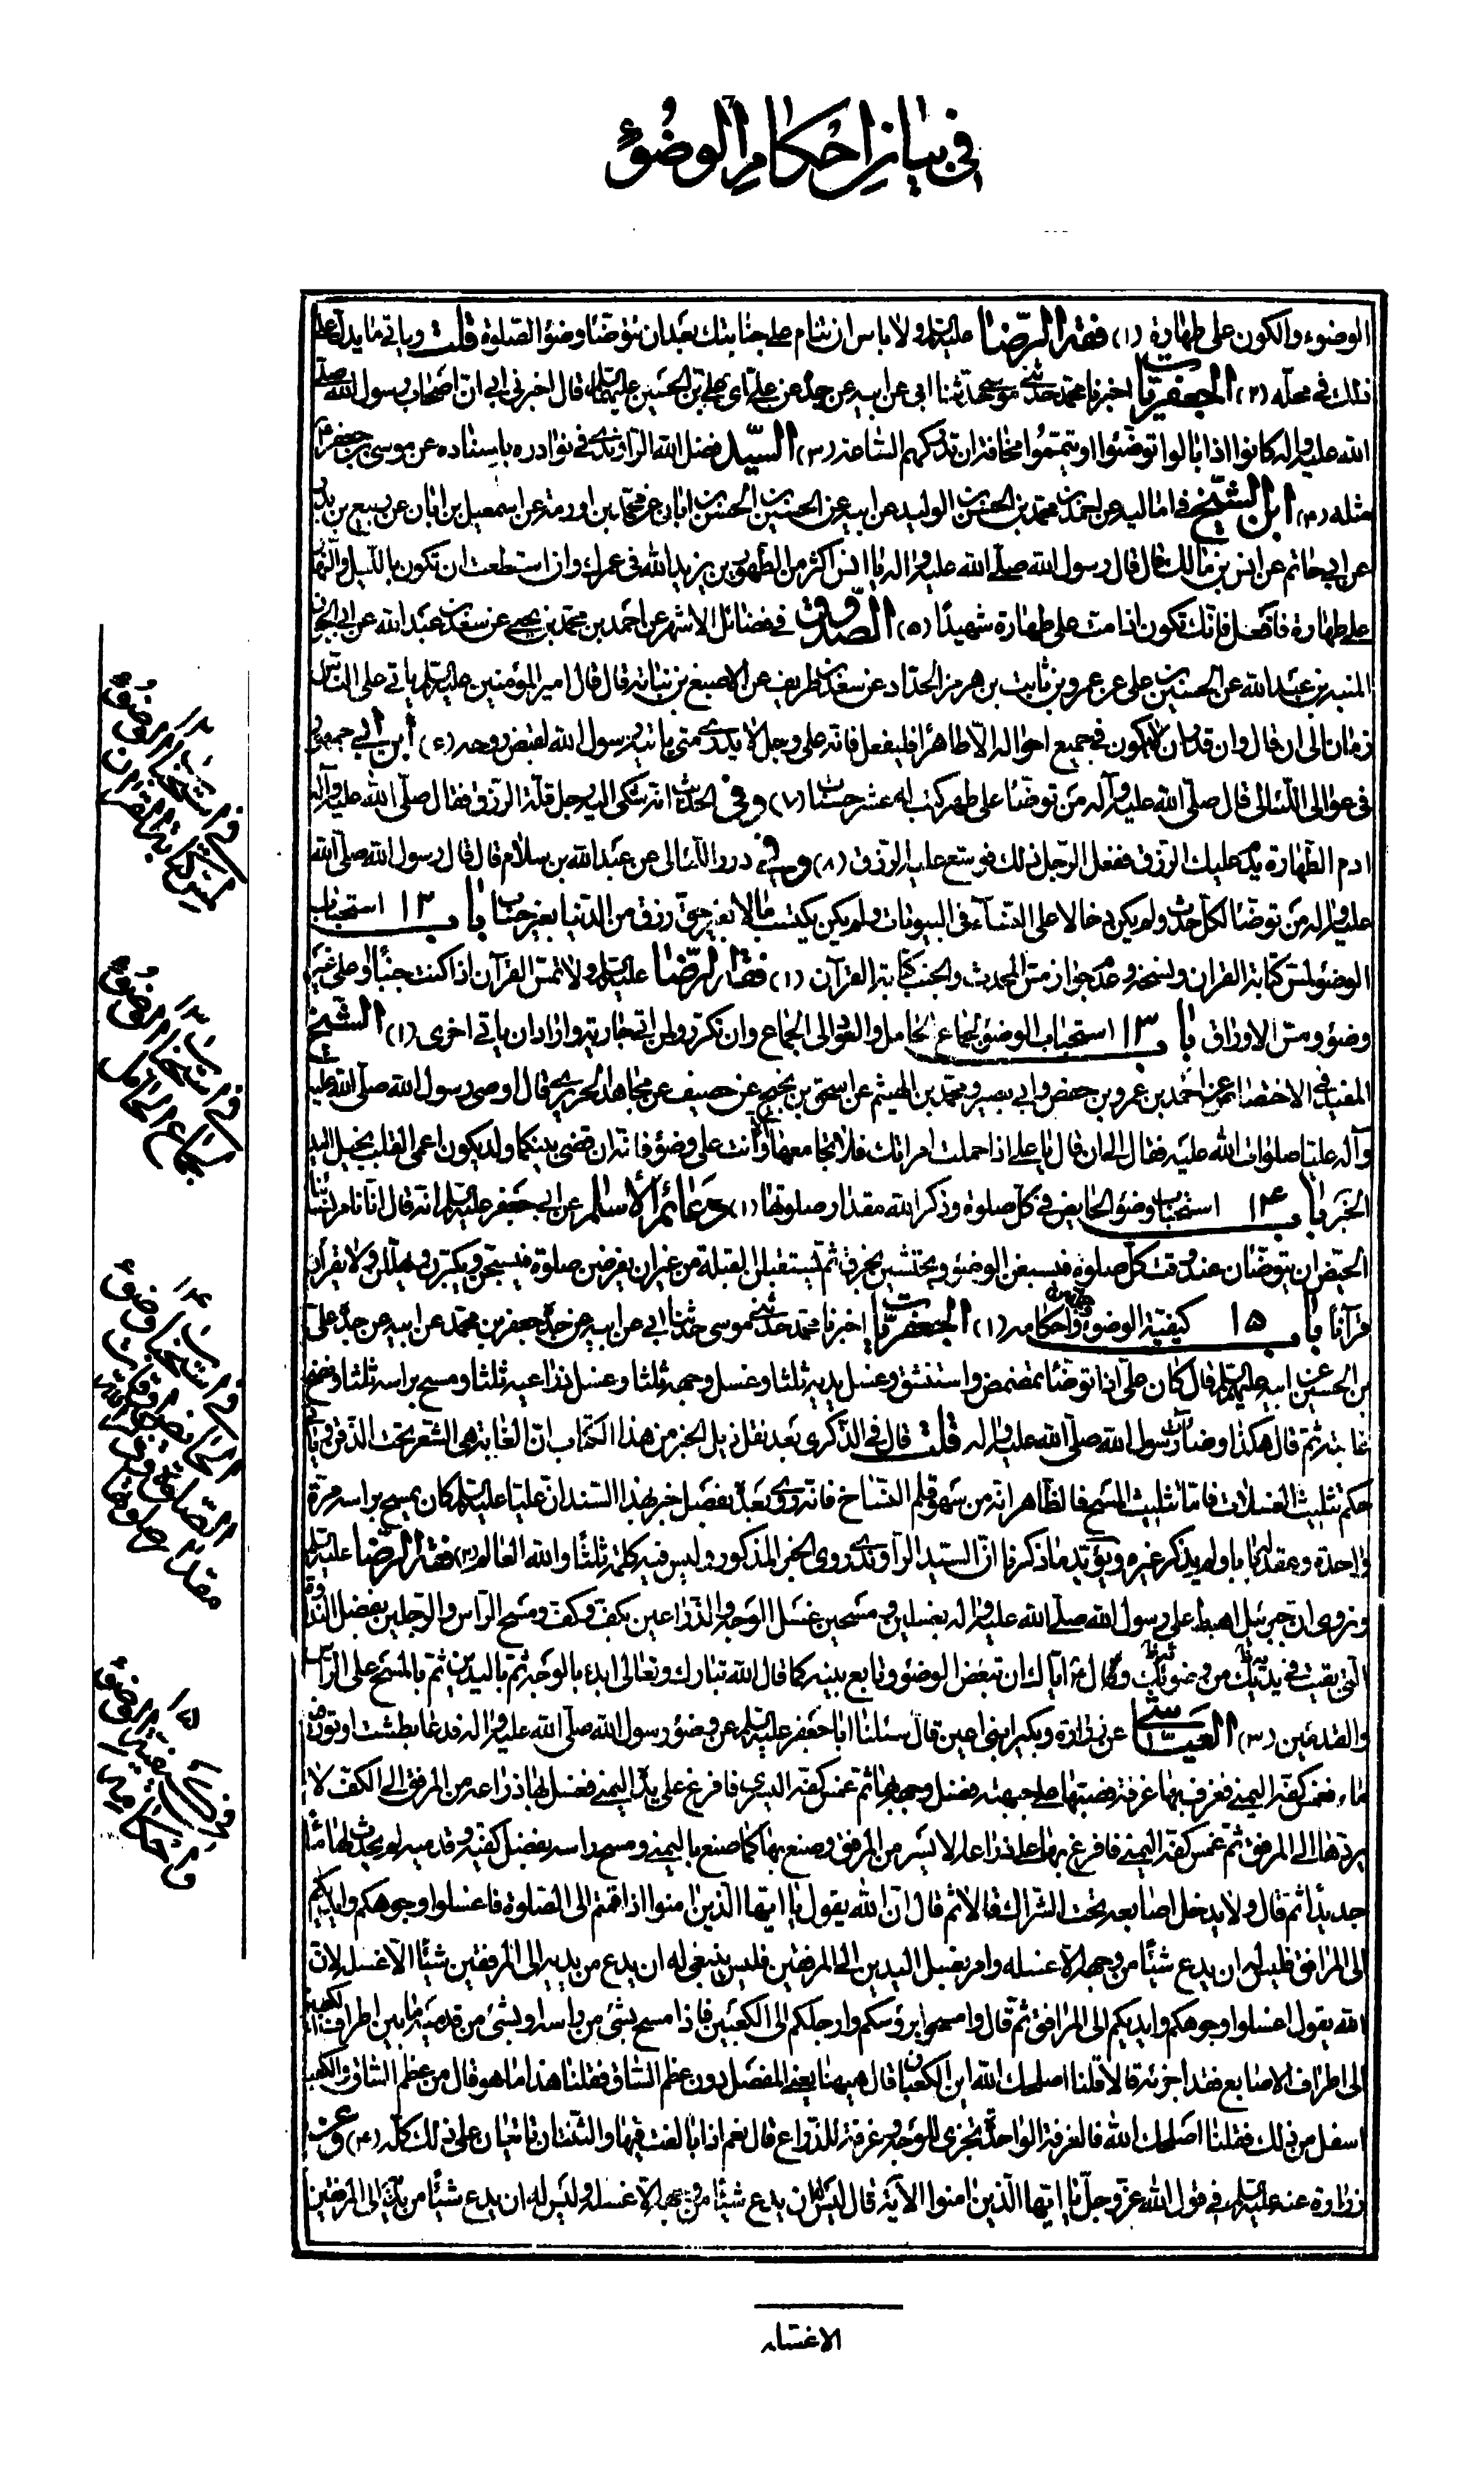 في بيان احكام الوضوء
الوضوء والكون على طهارة (١) فقه الرضا عليه السلم ولا باس ان تنام على جنابتك بعد ان تتوضأ وضوء الصلوة قلت وياتي ما يدل على
ذلك في محله (٢) الجعفريات اخبرنا محمد حدثني موسى حدثنا ابي عن ابيه عن جده عن علي بن الحسين عليهما السلم قال اخبرني ابي ان اصحاب رسول الله صلى
الله عليه واله كانوا اذا بالوا توضؤا او تيمموا مخافة ان تدركهم الساعة (٣) السيد فضل الله الراوندي في نوادره باسناده عن موسى بن جعفر ع
مثله (٤) ابن الشيخ في اماليه عن احمد بن محمد بن الحسن بن الوليد عن ابيه عن الحسين بن الحسن بن ابان عن محمد بن اورمة عن اسمعيل بن ابان عن ربيع بن بدر
عن ابي حاتم عن انس بن مالك قال قال رسول الله صلى الله عليه واله يا انس اكثر من الطهور يزيد الله في عمرك وان استطعت ان تكون بالليل والنهار
على طهارة فافعل فانك تكون اذا مت على طهارة شهيدا (٥) الصدوق في فضائل الاشهر عن احمد بن محمد بن يحيى عن سعد بن عبد الله عن ابي الجوزا
المنبه بن عبد الله عن الحسين بن علي عن عمرو بن ثابت بن هرمز الحداد عن سعد بن طريف عن الاصبغ بن نباتة قال قال امير المؤمنين عليه السلم ياتي على الناس
زمان الى ان قال وان قدر ان لا يكون في جميع احواله الا طاهرا فليفعل فانه على وجل لا يدري متى ياتيه رسول الله لقبض روحه (٦) ابن ابي جمهور
في عوالي اللئالي قال صلى الله عليه وآله من توضأ على طهر كتب له عشر حسنات (٧) وفي الحديث انه شكى اليه رجل قلة الرزق فقال صلى الله عليه وآله
ادم الطهارة يدم عليك الرزق ففعل الرجل ذلك فوسع عليه الرزق (٨) وفي درر اللئالي عن عبد الله بن سلام قال قال رسول الله صلى الله
عليه واله من توضأ لكل حدث ولم يكن دخالا على النساء في البيوتات ولم يكن يكتسب مالا بغير حق رزق من الدنيا بغير حساب باب ١٢ استحباب
الوضوء لمس كتابة القران ونسخه وعدم جواز مس المحدث والجنب كتابة القرآن (١) فقه الرضا عليه السلم ولا تمس القرآن اذا كنت جنبا او على غير
وضوء ومس الاوراق باب ١٣ استحباب الوضوء لجماع الحامل والعود الى الجماع وان تكرر ولمن اتى جاريته واراد ان ياتي اخرى (١) الشيخ
المفيد في الاختصاص عن احمد بن عمرو بن حفص وابي بصير ومحمد بن الهيثم عن اسحق بن نجيح عن حصيف عن مجاهد الخدري قال اوصى رسول الله صلى الله عليه
وآله عليا صلوات الله عليه فقال الى ان قال يا علي اذا حملت امراتك فلا تجامعها الا وانت على وضوء فانه ان قضى بينكما ولد يكون اعمى القلب بخيل اليد
الخبر باب ١٤ استحباب وضوء الحايض في كل صلوة وذكر الله مقدار صلوتها (١) دعائم الاسلام عن ابي جعفر عليه السلم انه قال انا نامر نساءنا
الحيض ان يتوضان عند وقت كل صلوة فيسبغن الوضوء ويحتشين بخرق ثم يستقبلن القبلة من غير ان يفرضن صلوة فيسبحن ويكبرن ويهللن ولا يقرأن
قرآنا باب ١٥ كيفية الوضوء واحكامه (١) الجعفريات اخبرنا محمد حدثني موسى حدثنا ابي عن ابيه عن جده جعفر بن محمد عن ابيه عن جده علي
بن الحسين عن ابيه عليهم السلم قال كان علي اذا توضأ تمضمض واستنشق وغسل يديه ثلثا وغسل وجهه ثلثا وغسل ذراعيه ثلثا ومسح براسه ثلثا ونضح
غابته ثم قال هكذا وضوء رسول الله صلى الله عليه واله قلت قال في الذكرى بعد نقل ذيل الخبر من هذا الكتاب ان الغابة هي الشعر تحت الذقن وياتي
حكم تثليث الغسلات فاما تثليث المسح فالظاهر انه من سهو قلم النساخ فانه روى بعد بفصل خبر بهذا السند ان عليا عليه السلم كان يمسح براسه مرة
واحدة وعقد لها بابا ولم يذكر غيره ويؤيد ما ذكرنا ان السيد الراوندي روى الخبر المذكور وليس فيه كلمة ثلثا والله العالم (٢) فقه الرضا عليه السلم
ونروي ان جبرئيل اهبط على رسول الله صلى الله عليه واله بغسلين ومسحين غسل الوجه والذراعين بكف وكف ومسح الراس والرجلين بفضل النداوة
التي بقيت في يديك من وضوئك وقال ع اياك ان تبعض الوضوء وتابع بينه كما قال الله تبارك وتعالى ابدء بالوجه ثم باليدين ثم بالمسح على الراس
والقدمين (٣) العياشي عن زرارة وبكير ابني اعين قال سئلنا ابا جعفر عليه السلم عن وضوء رسول الله صلى الله عليه واله فدعا بطشت او تور فيه
ماء فغمس كفه اليمنى فغرف بها غرفة فصبها على جبهته فغسل وجهه بها ثم غمس كفه اليسرى فافرغ على يده اليمنى فغسل بها ذراعه من المرفق الى الكف لا
يردها الى المرفق ثم غمس كفه اليمنى فافرغ بها على ذراعه الايسر من المرفق وصنع بها كما صنع باليمنى ومسح راسه بفضل كفيه وقدميه لم يحدث لها ماء
جديدا ثم قال ولا يدخل اصابعه تحت الشراك قالا ثم قال ان الله يقول يا ايها الذين امنوا اذا قمتم الى الصلوة فاغسلوا وجوهكم وايديكم
الى المرافق فليس له ان يدع شيئا من وجهه الا غسله وامر بغسل اليدين الى المرفقين فليس ينبغي له ان يدع من يديه الى المرفقين شيئا الا غسله لان
الله يقول اغسلوا وجوهكم وايديكم الى المرافق ثم قال وامسحوا برؤسكم وارجلكم الى الكعبين فاذا مسح بشئ من راسه وبشئ من قدميه ما بين اطراف الكعبين
الى اطراف الاصابع فقد اجزئه قالا قلنا اصلحك الله اين الكعبان قال هيهنا يعني المفصل دون عظم الساق فقلنا هذا ما هو قال من عظم الساق والكعب
اسفل من ذلك فقلنا اصلحك الله فالغرفة الواحدة تجزي للوجه وغرفة للذراع قال نعم اذا بالغت فيها والثنتان تاتيان على ذلك كله (٤) وعن
زرارة عنه عليه السلم في قول الله عز وجل يا ايها الذين امنوا الآية قال ليس له ان يدع شيئا من وجهه الا غسله وليس له ان يدع شيئا من يديه الى المرفقين
١٢
في استحباب الوضوء
لمس كتابة القران
١٣
في استحباب الوضوء
لجماع الحامل
١٤
في استحباب وضوء
الحائض
مقدار صلوتها
في كيفية الوضوء
واحكامه
الا غسله